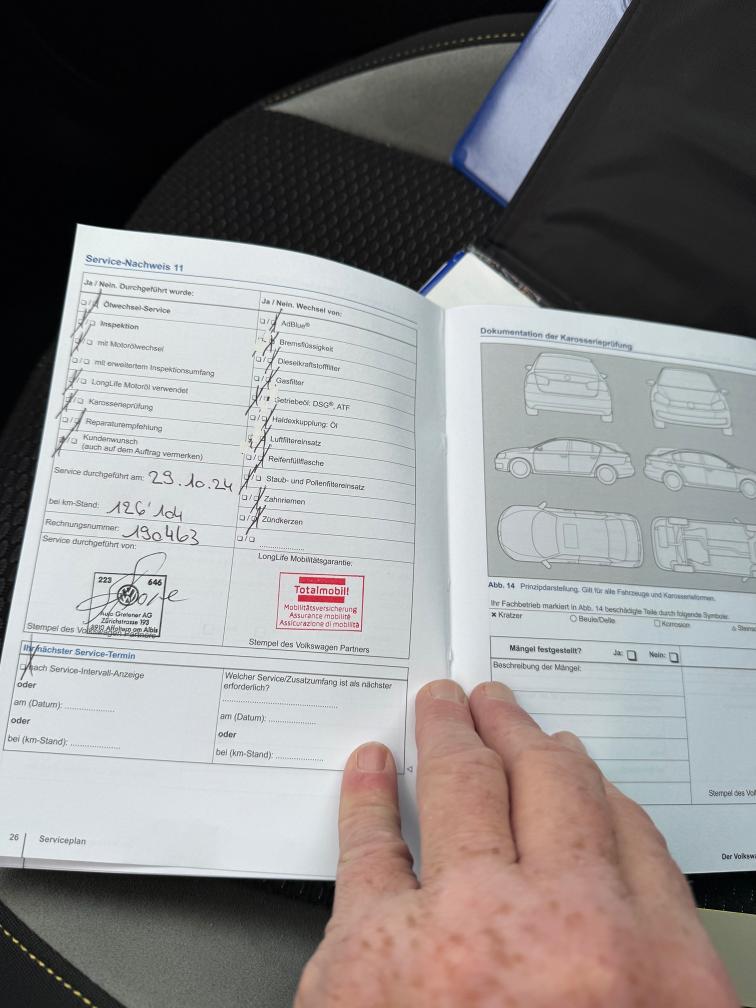 Service-Nachweis 11
Ja / Nein. Durchgeführt wurde:
Ölwechsel-Service
Inspektion
mit Motorölwechsel
mit erweitertem Inspektionsumfang
LongLife Motoröl verwendet
Karosserieprüfung
Reparaturempfehlung
Kundenwunsch
(auch auf dem Auftrag vermerken)
Service durchgeführt am: 29.10.24
bei km-Stand: 126'104
Rechnungsnummer: 190463
Service durchgeführt von:
223 646
Auto Gretener AG
Zürichstrasse 193
8910 Affoltern am Albis
Stempel des Volkswagen Partners
Ja / Nein. Wechsel von:
AdBlue®
Bremsflüssigkeit
Dieselkraftstofffilter
Gasfilter
Getriebeöl: DSG®, ATF
Haldexkupplung: Öl
Luftfiltereinsatz
Reifenfüllflasche
Staub- und Pollenfiltereinsatz
Zahnriemen
Zündkerzen
LongLife Mobilitätsgarantie:
Totalmobil!
Mobilitätsversicherung
Assurance mobilité
Assicurazione di mobilità
Stempel des Volkswagen Partners
Ihr nächster Service-Termin
nach Service-Intervall-Anzeige
oder
am (Datum): ...............
oder
bei (km-Stand): ...............
Welcher Service/Zusatzumfang ist als nächster
erforderlich?
am (Datum): ...............
oder
bei (km-Stand): ...............
26 Serviceplan
Dokumentation der Karosserieprüfung
Abb. 14 Prinzipdarstellung. Gilt für alle Fahrzeuge und Karosserieformen.
Ihr Fachbetrieb markiert in Abb. 14 beschädigte Teile durch folgende Symbole:
Kratzer Beule/Delle Korrosion
Mängel festgestellt? Ja: Nein:
Beschreibung der Mängel:
Stempel des
Der